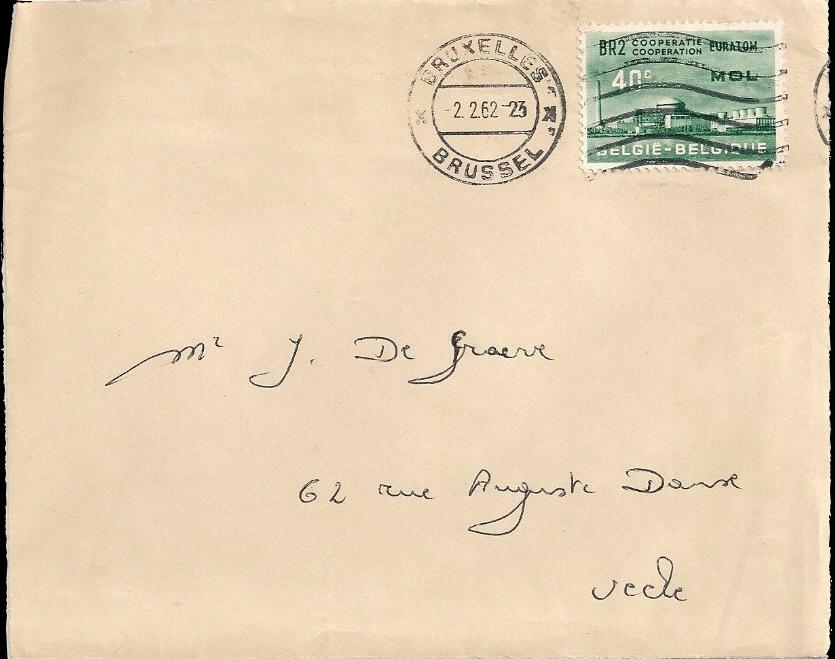 BRUXELLES
-2. 2.62-23
BRUSSEL
BR2 COOPERATIE EURATOM
COOPERATION
40c MOL
BELGIË-BELGIQUE
Mr J. De Graeve
62 rue Auguste Danse
Uccle